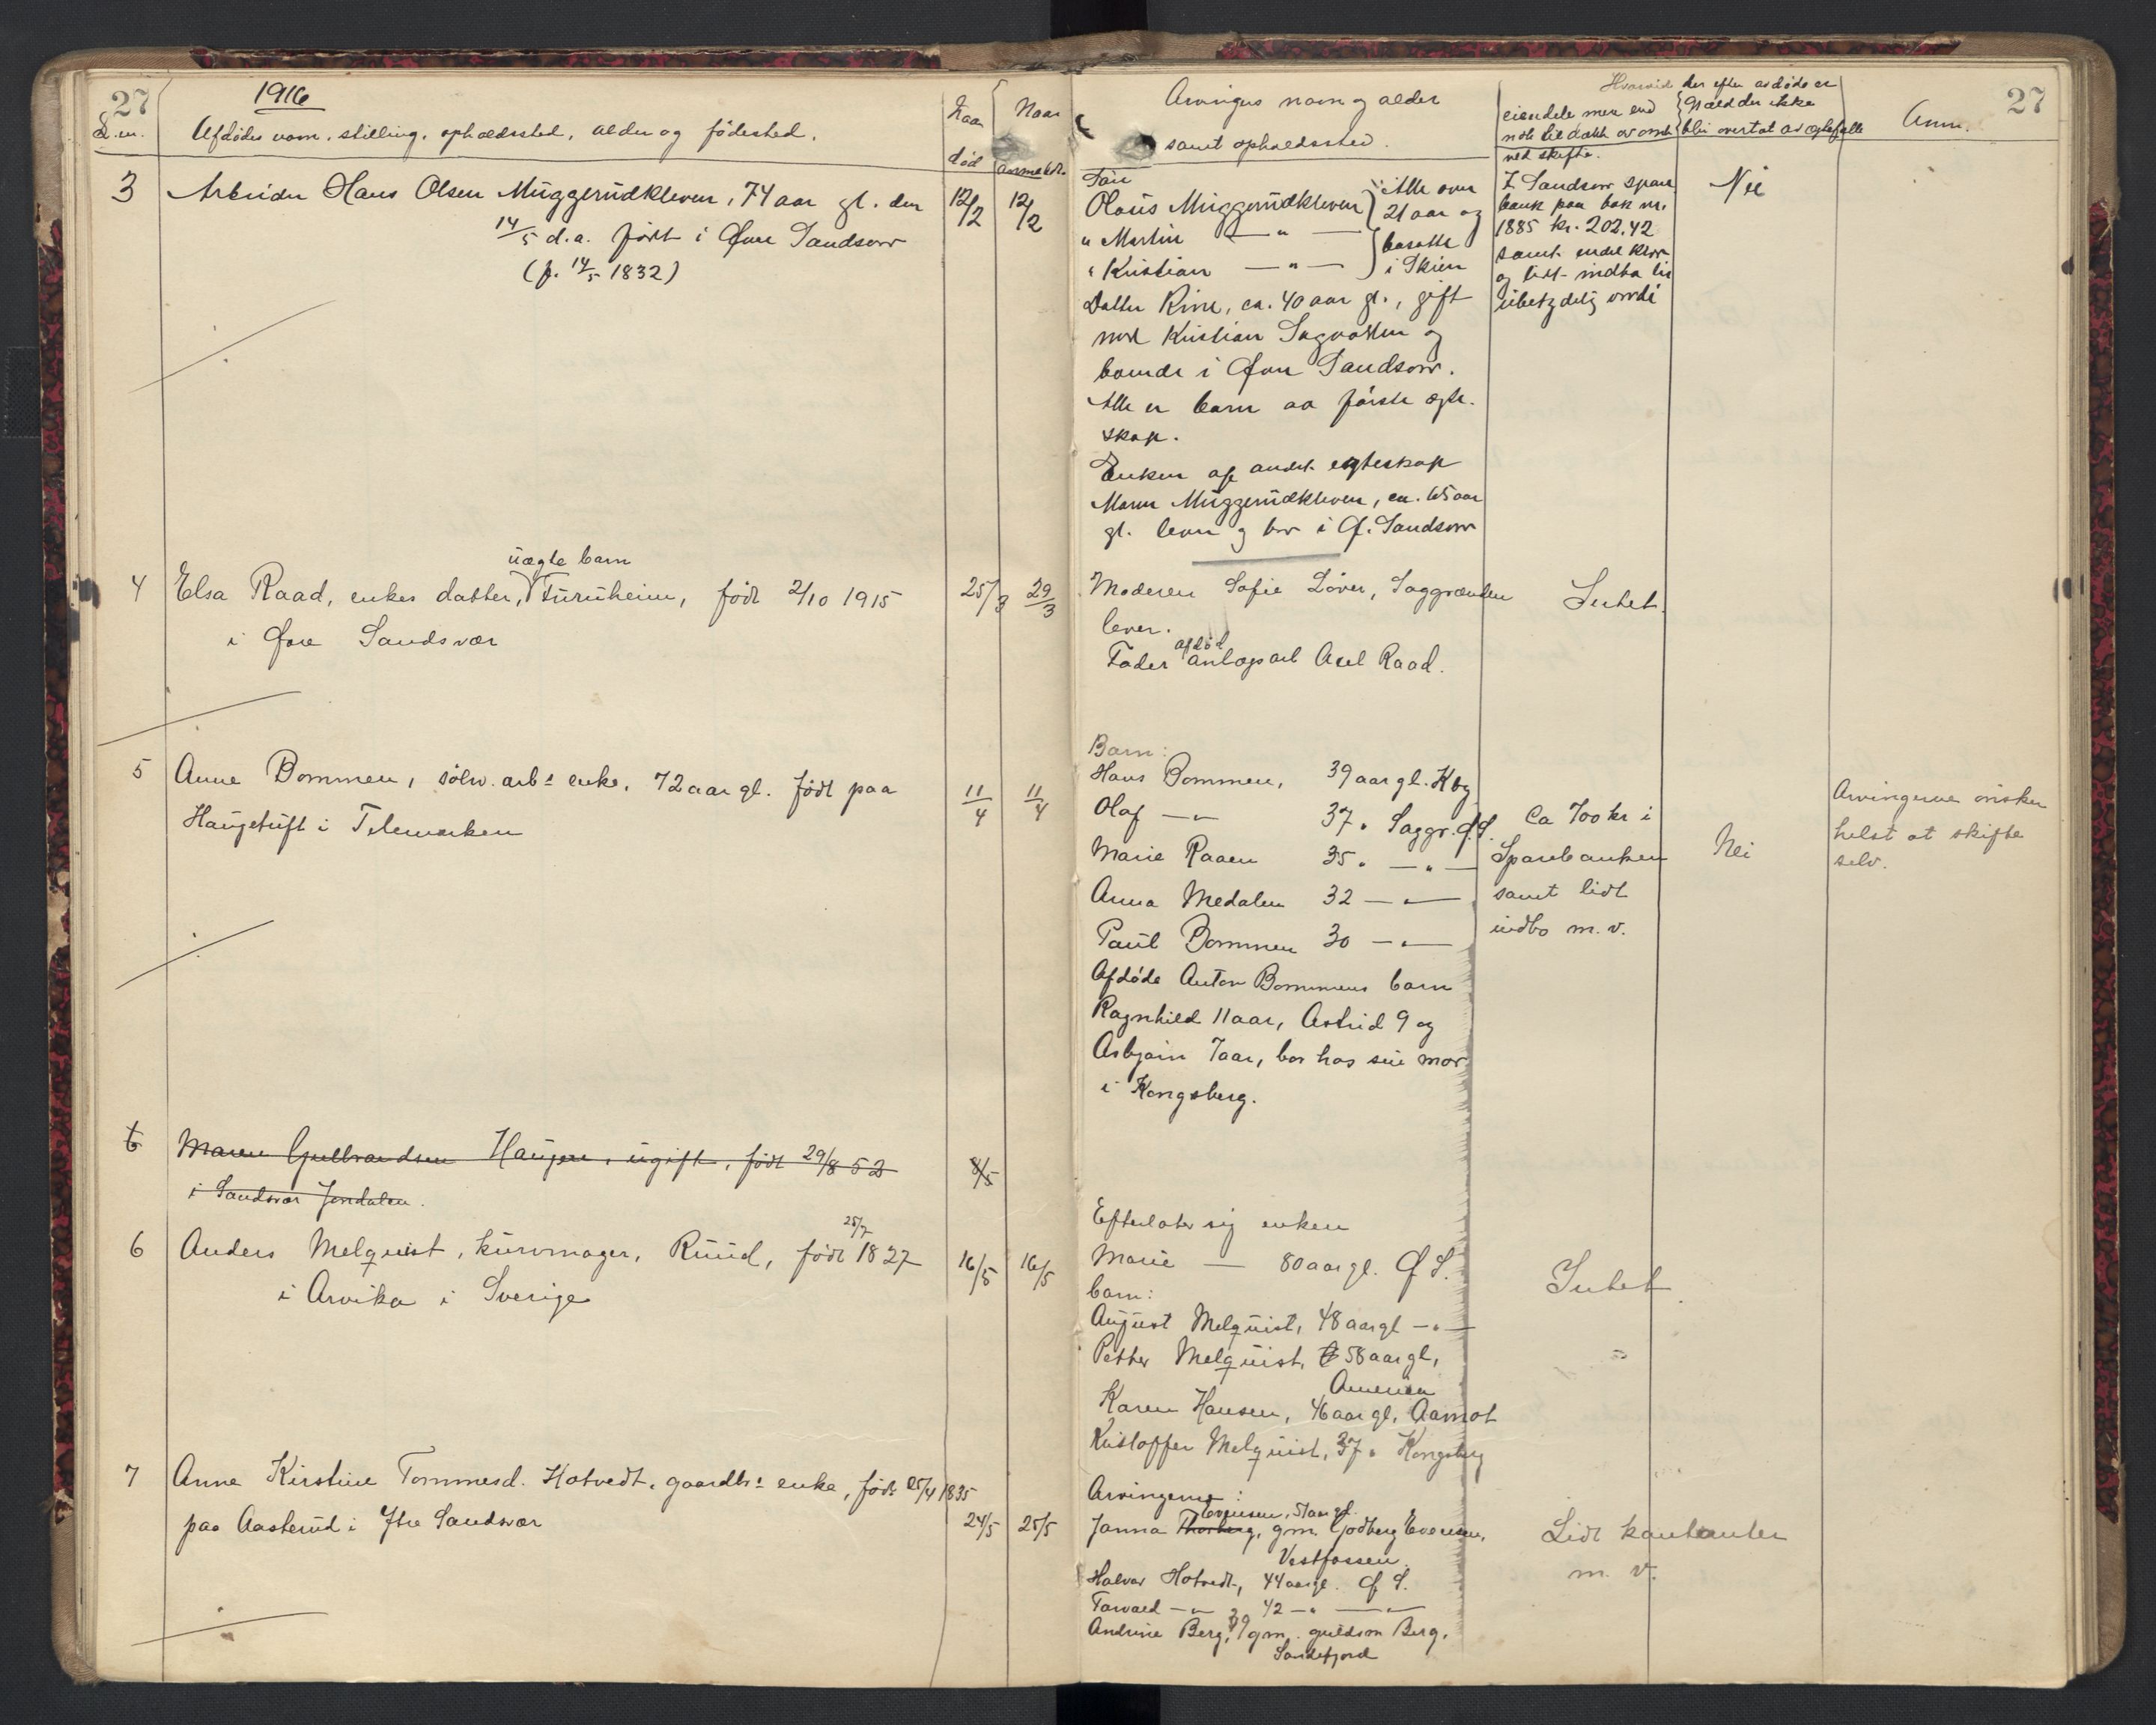 27
1916
L.nr.
Afdødes navn, stilling, opholdssted, alder og fødested.
Naar død
Naar anmeldt.
Arvinges navn og alder
samt opholdssted.
Hvorvidt der efter avdøde er
eiendele mer end
nok til dækk. av omk.
ved skifte.
Gæld der ikke
blir overtat av ægtefælle
Anm.
27
3 Arbeider Hans Olsen Muggerudkleven, 74 aar gl. den
14/5 d.a. født i Øvre Sandsvær
(f. 14/5 1832)
12/2
12/2
Søn
Olaus Muggerudkleven
" Martin — " —
" Kristian — " —
Alle over
21 aar og
bosatte
i Skien
Datter Rine, ca. 40 aar gl., gift
med Kristian Sagvolden og
boende i Øvre Sandsvær.
Alle er barn aa første ægte-
skap.
Enken af andet egteskap
Maren Muggerudkleven, ca. 65 aar
gl. lever og bor i Ø. Sandsvær
I Sandsvær spare
bank paa bok nr.
1885 kr. 202,42
samt endel klær
og lidt indbo til
ubetydelig værdi
Nei
4 Elsa Raad, enkes datter, Furuheim, født 2/10 1915
uægte barn
i Øvre Sandsvær
25/3
29/3
Moderen Sofie Løver, Saggrænden
lever.
Fader afdød anlægsarb Axel Raad.
Intet.
5 Anne Bommen, sølv.arbs enke, 72 aar gl. født paa
Haugetuft i Telemarken
11/4
11/4
Barn:
Hans Bommen, 39 aar gl. Kbg
Olaf — " — 37 " Saggr. Ø.S.
Marie Raaen 35 " — " —
Anna Medalen 32 — " —
Paul Bommen 30 — " —
Afdøde Anton Bommens barn
Ragnhild 11 aar, Astrid 9 og
Asbjørn 7 aar, bor hos sin mor
i Kongsberg.
Ca 700 kr i
Sparebanken
samt lidt
indbo m.v.
Nei
Arvingerne ønsker
helst at skifte
selv.
6 Maren Gulbrandsen Haugen, ugift, født 29/8 52
i Sandsvær Jondalen.
8/5
6 Anders Melquist, kurvmager, Ruud, født 25/7 1827
i Arvika i Sverige
16/5
16/5
Efterlater sig enken
Marie — 80 aar gl. Ø S.
barn:
August Melquist, 48 aar gl — " —
Petter Melquist, 58 aar gl,
America
Karen Hansen, 46 aar gl, Aamot
Kristoffer Melquist, 37 " Kongsberg
Intet.
7 Anne Kirstine Tommesd. Hotvedt, gaardbrs enke, født 25/4 1835
paa Aasterud i Ytre Sandsvær
24/5
25/5
Arvingerne:
Evensen, 51 aar gl.
Janna Thorberg, gm. Godberg Evensen,
Vestfossen.
Halvor Hotvedt, 44 aar gl. Ø S.
Torvald — " — 42 — " — " —
Andrine Berg, 39 gm. guldsm Berg,
Sandefjord
Lidt kontanter
m. v.